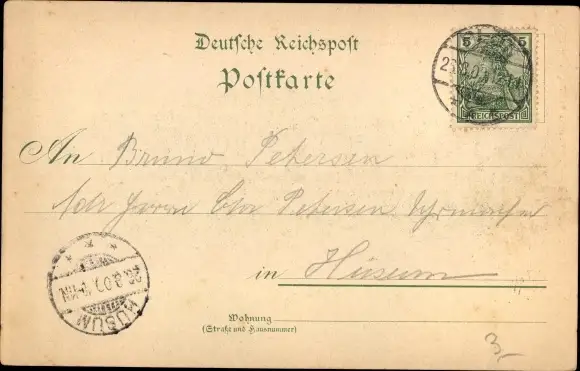 Deutsche Reichspost
Postkarte
5 5
REICHSPOST
An Bruno Petersen
Adr Herrn Petersen Uhrmacher
in Husum
HUSUM
Wohnung
(Straße und Hausnummer)
3,-